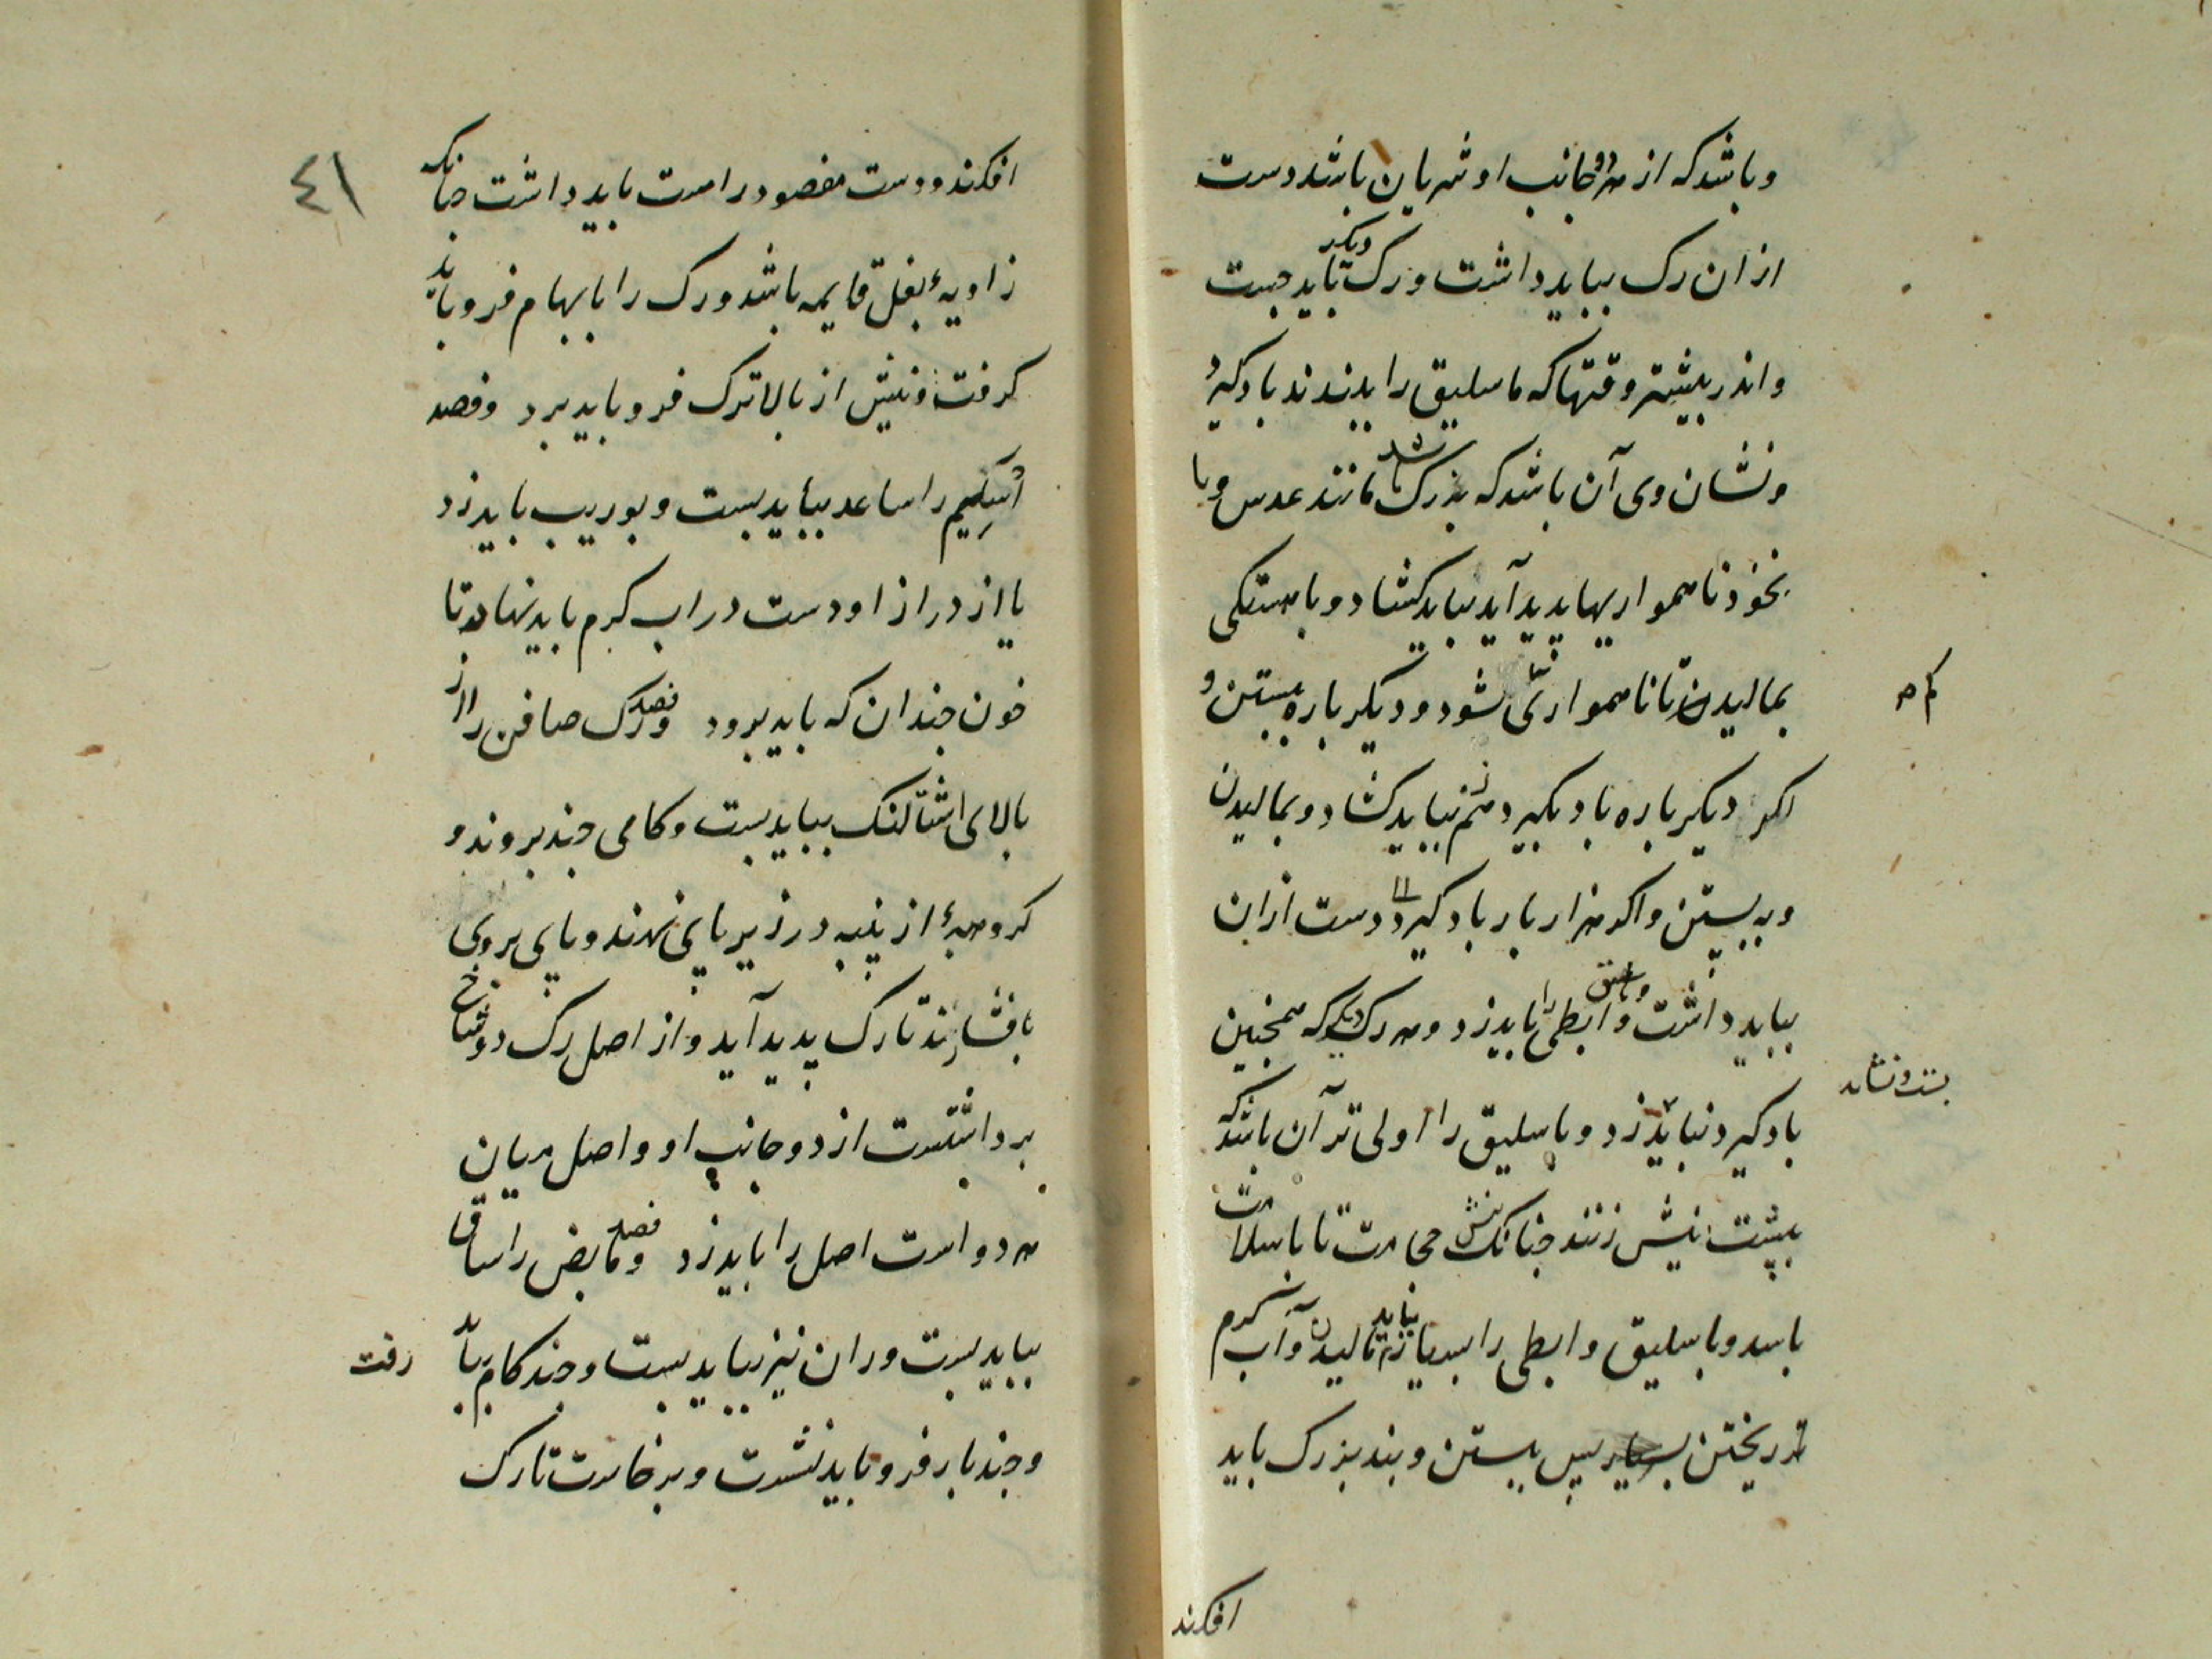 و باشد که از هر دو جانب او شریان باشد دست
از ان رک ببباید داشت و رک دیکر باید جست
و اندر بیشتر وقتها که باسلیق را ببندند باد کیرد
و نشان وی آن باشد که بزرک شد مانند عدس و یا
نخود ناهمواریها پدید آید بباید کشاد و باهستکی
بمالیدن تا ناهمواری بشود و دیکر باره ببستن و
اکر دیکر باره باد بکیرد هم بباید کشاد و بمالیدن
و ببستن و اکر هزار بار باد کیرد دست ازان
بباید داشت و ابطی را باید زد و هر رک دیکر که همچنین
باد کیرد نباید زد و باسلیق را اولی تر آن باشد که
بپشت نیش زنند چنانک نیش حجامت تا باسلامت
باسد و باسلیق و ابطی را بسیار نباید مالیدن و آب کرم
بر ریختن پس ببستن و بند بزرک باید
افکند
افکند و دست مفصود راست باید داشت چنانکه
زاویهٔ بغل قایمه باشد و رک را بابهام فرو باید
کرفت و نیش از بالاترک فرو باید برد و فصد
اُسَیلِم را ساعد بباید بست و بوریب باید زد
یا از دراز او دست در اب کرم باید نهاد تا
خون چندان که باید برود و فصد رک صافن را از
بالای اشتالنک بباید بست و کامی چند بروند و
کروههٔ از پنبه در زیر پای نهند و پای بروی
بافشارند تا رک پدید آید و از اصل رک دو شاخ
برداشتست از دو جانب او و اصل میان
هر دو است اصل را باید زد و فصد مابض را ساق
بباید بست و ران نیز بباید بست و چند کام بباید
رفت
و چند بار فرو باید نشست و برخاست تا رک
٤١